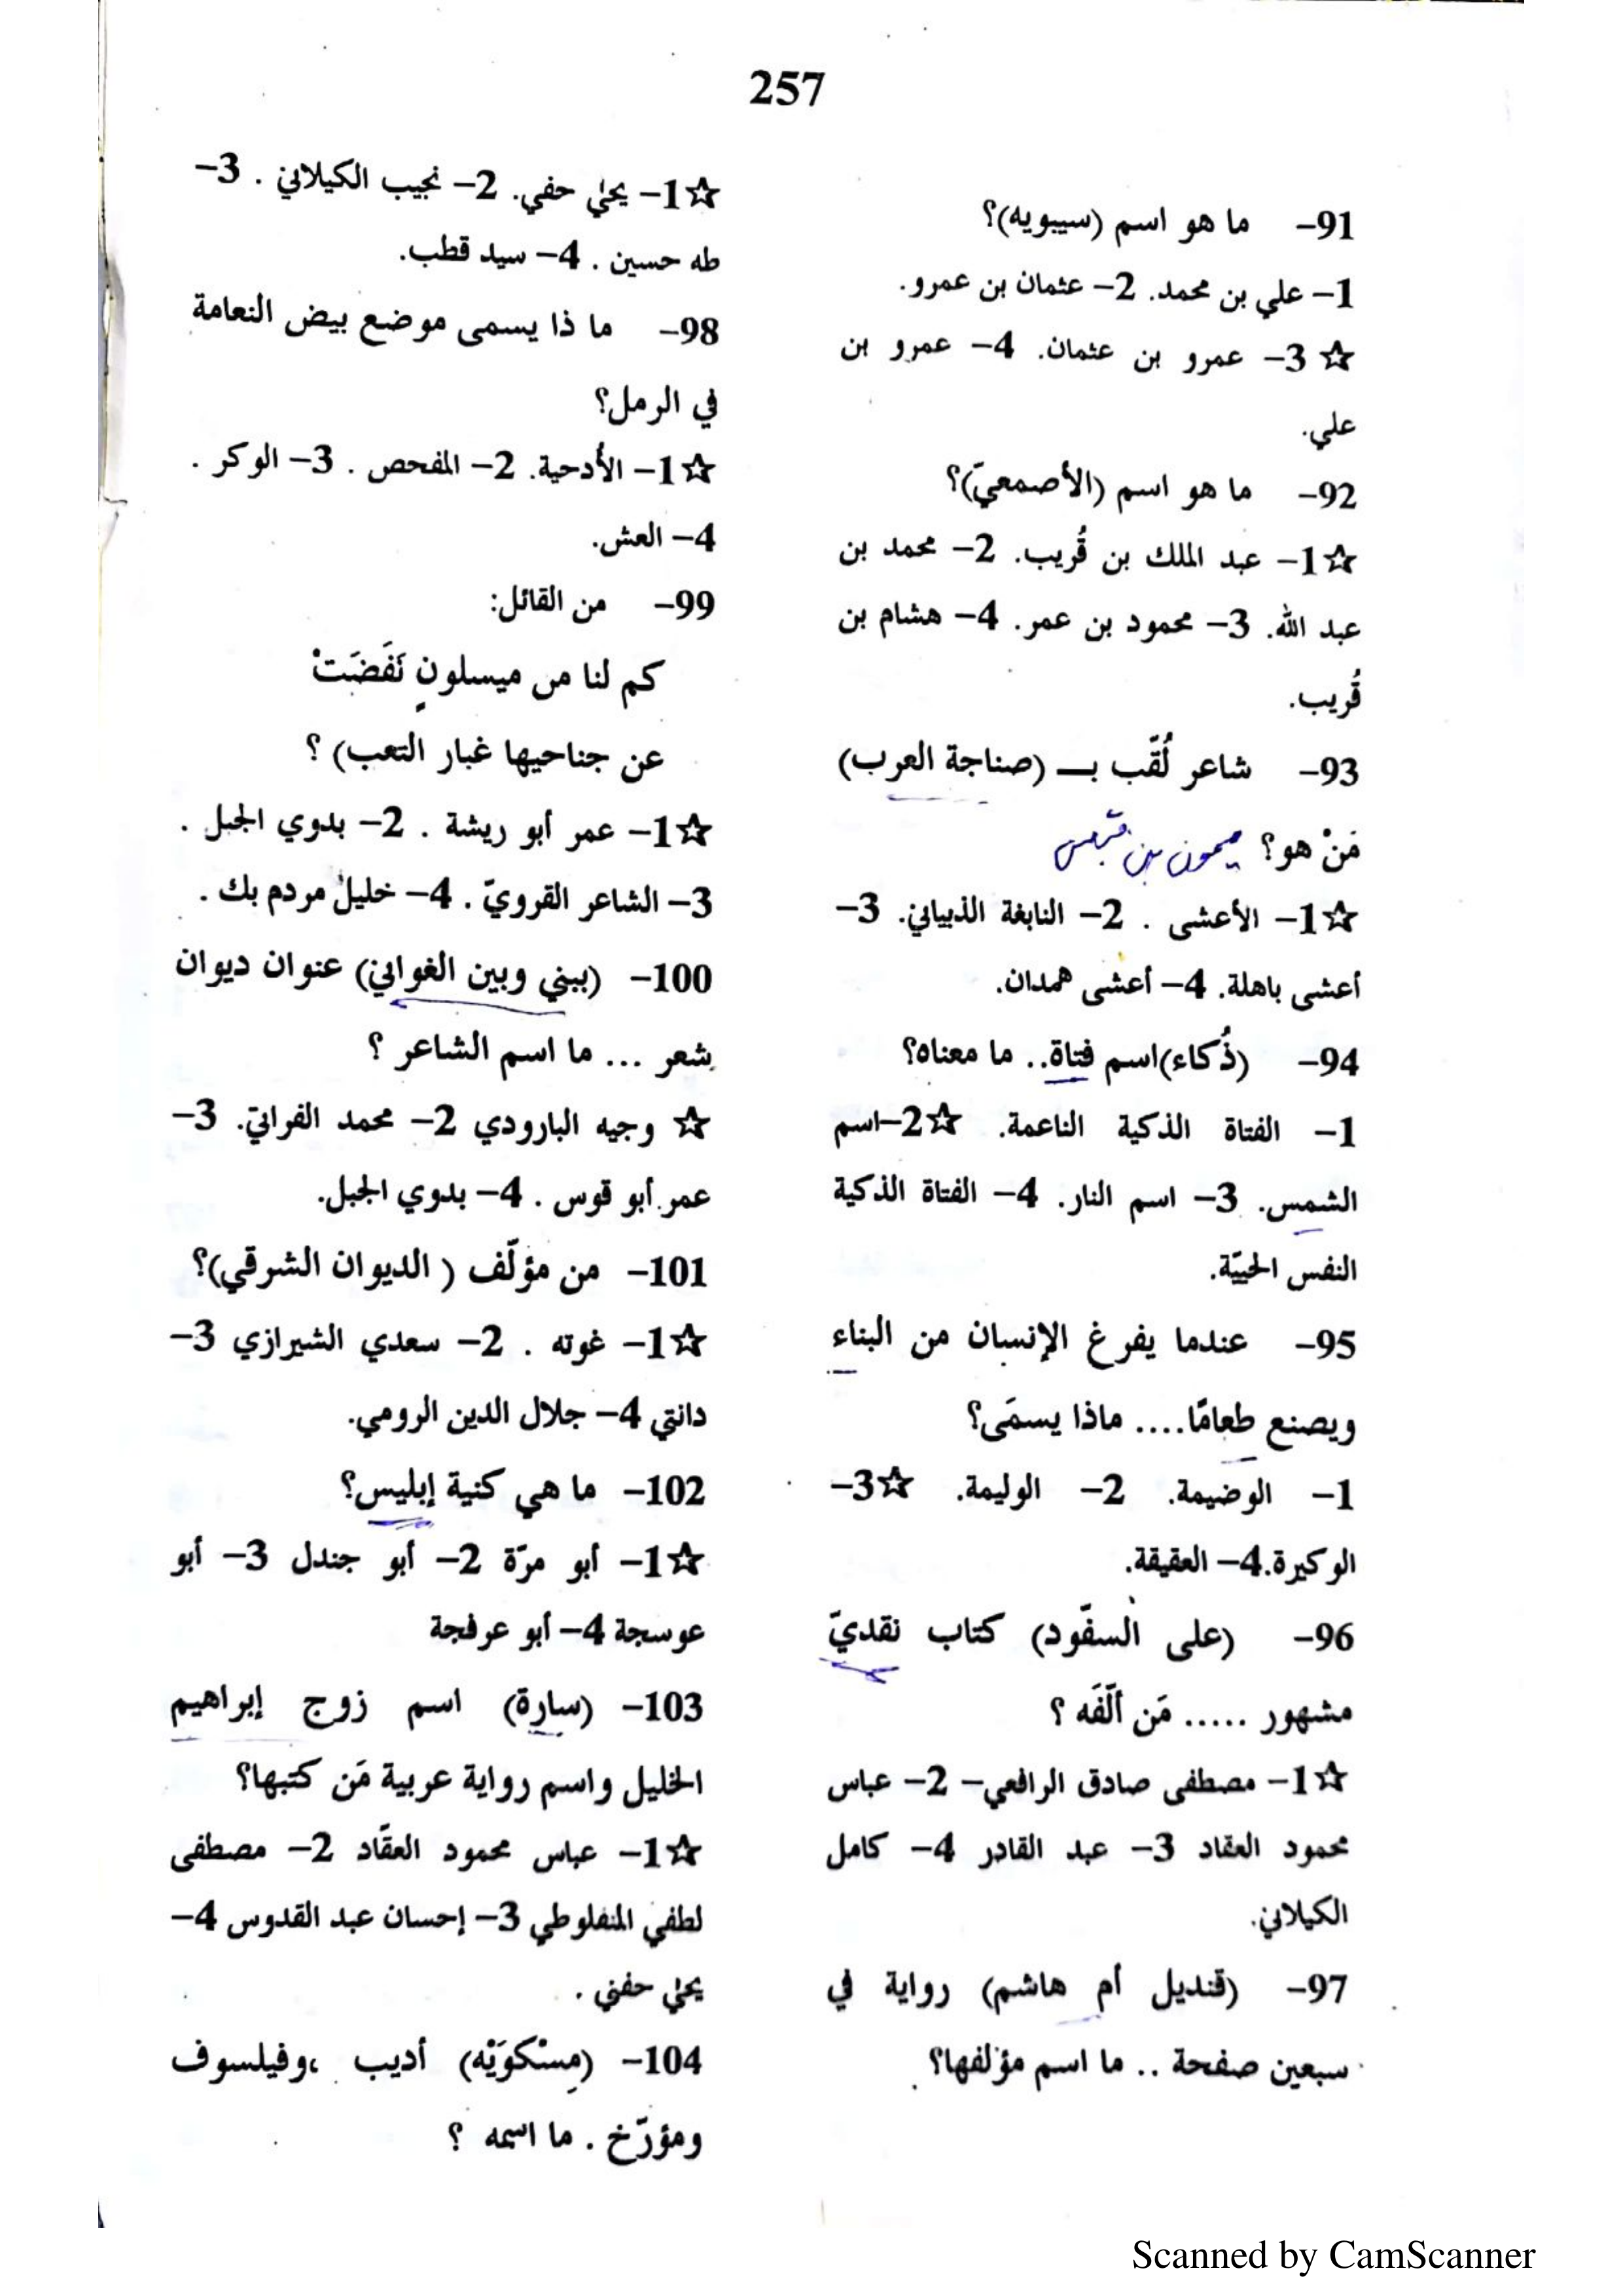 257
91- ما هو اسم (سيبويه)؟
1- علي بن محمد. 2- عثمان بن عمرو.
☆ 3- عمرو بن عثمان. 4- عمرو بن
علي.
92- ما هو اسم (الأصمعيّ)؟
☆1- عبد الملك بن قُريب. 2- محمد بن
عبد الله. 3- محمود بن عمر. 4- هشام بن
قُريب.
93- شاعر لُقّب بــ (صناجة العرب)
مَنْ هو؟ ميمون بن قيس
☆1- الأعشى . 2- النابغة الذبياني. 3-
أعشى باهلة. 4- أعشى همدان.
94- (ذُكاء)اسم فتاة.. ما معناه؟
1- الفتاة الذكية الناعمة. ☆2-اسم
الشمس. 3- اسم النار. 4- الفتاة الذكية
النفس الحييّة.
95- عندما يفرغ الإنسان من البناء
ويصنع طعامًا.... ماذا يسمَى؟
1- الوضيمة. 2- الوليمة. ☆3-
الوكيرة.4- العقيقة.
96- (على السفّود) كتاب نقديّ
مشهور ..... مَن ألّفَه ؟
☆1- مصطفى صادق الرافعي- 2- عباس
محمود العقاد 3- عبد القادر 4- كامل
الكيلاني.
97- (قنديل أم هاشم) رواية في
سبعين صفحة .. ما اسم مؤلفها؟
☆1- يحيٰ حفي. 2- نجيب الكيلاني . 3-
طه حسين . 4- سيد قطب.
98- ما ذا يسمى موضع بيض النعامة
في الرمل؟
☆1- الأدحية. 2- المفحص . 3- الوكر .
4- العش.
99- من القائل:
كم لنا من ميسلونٍ نَفَضَتْ
عن جناحيها غبار التعب) ؟
☆1- عمر أبو ريشة . 2- بدوي الجبل .
3- الشاعر القرويّ . 4- خليل مردم بك .
100- (بيني وبين الغواني) عنوان ديوان
شعر ... ما اسم الشاعر ؟
☆ وجيه البارودي 2- محمد الفراتيّ. 3-
عمر أبو قوس . 4- بدوي الجبل.
101- من مؤلّف ( الديوان الشرقي)؟
☆1- غوته . 2- سعدي الشيرازي 3-
دانتي 4- جلال الدين الرومي.
102- ما هي كنية إبليس؟
☆1- أبو مرّة 2- أبو جندل 3- أبو
عوسجة 4- أبو عرفجة
103- (سارة) اسم زوج إبراهيم
الخليل واسم رواية عربية مَن كتبها؟
☆1- عباس محمود العقّاد 2- مصطفى
لطفي المنفلوطي 3- إحسان عبد القدوس 4-
يحيٰ حفني .
104- (مِسْكوَيْه) أديب ،وفيلسوف
ومؤرّخ . ما اسمه ؟
Scanned by CamScanner